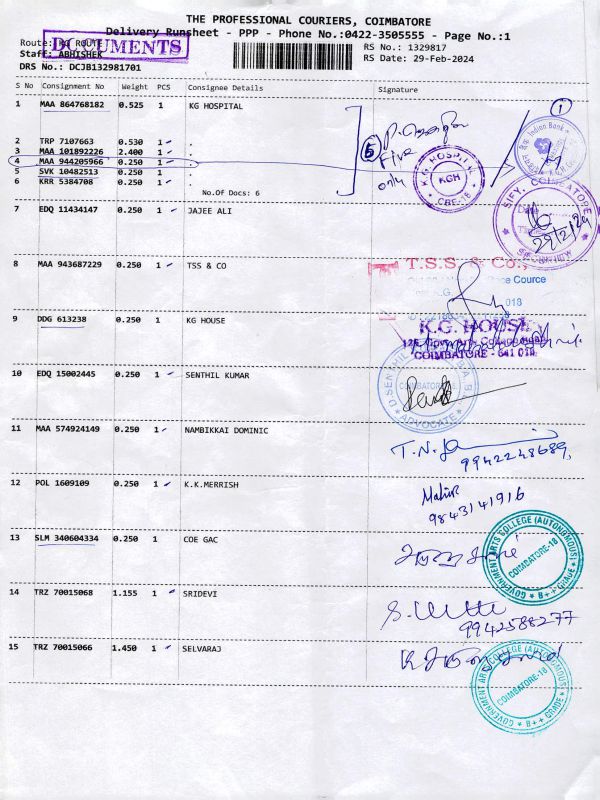 THE PROFESSIONAL COURIERS, COIMBATORE
Delivery Runsheet - PPP - Phone No.:0422-3505555 - Page No.:1
DOCUMENTS
Staff: ABHISHEK
DRS No.: DCJB132981701
RS No.: 1329817
RS Date: 29-Feb-2024
S No Consignment No Weight PCS Consignee Details Signature
1 MAA 864768182 0.525 1 KG HOSPITAL
2 TRP 7107663 0.530 1 .
3 MAA 101892226 2.400 1 .
4 MAA 944205966 0.250 1 .
5 SVK 10482513 0.250 1 .
6 KRR 5384708 0.250 1 .
No.Of Docs: 6
5
Five
only
K.G. HOSPITAL
KGH
CBE-18
1
Indian Bank
SIFY, COIMBATORE
29/2/24
7 EDQ 11434147 0.250 1 JAJEE ALI
8 MAA 943687229 0.250 1 TSS & CO
T.S.S. & Co.,
018
9 DDG 613238 0.250 1 KG HOUSE
K.G. HOUSE
COIMBATORE - 641 018
10 EDQ 15002445 0.250 1 SENTHIL KUMAR
ADVOCATE
11 MAA 574924149 0.250 1 NAMBIKKAI DOMINIC
9942248689,
12 POL 1609109 0.250 1 K.K.MERRISH
9843141916
13 SLM 340604334 0.250 1 COE GAC
GOVERNMENT ARTS COLLEGE (AUTONOMOUS)
COIMBATORE-18
B++ GRADE
14 TRZ 70015068 1.155 1 SRIDEVI
9942588277
15 TRZ 70015066 1.450 1 SELVARAJ
GOVERNMENT ARTS COLLEGE (AUTONOMOUS)
COIMBATORE-18
B++ GRADE